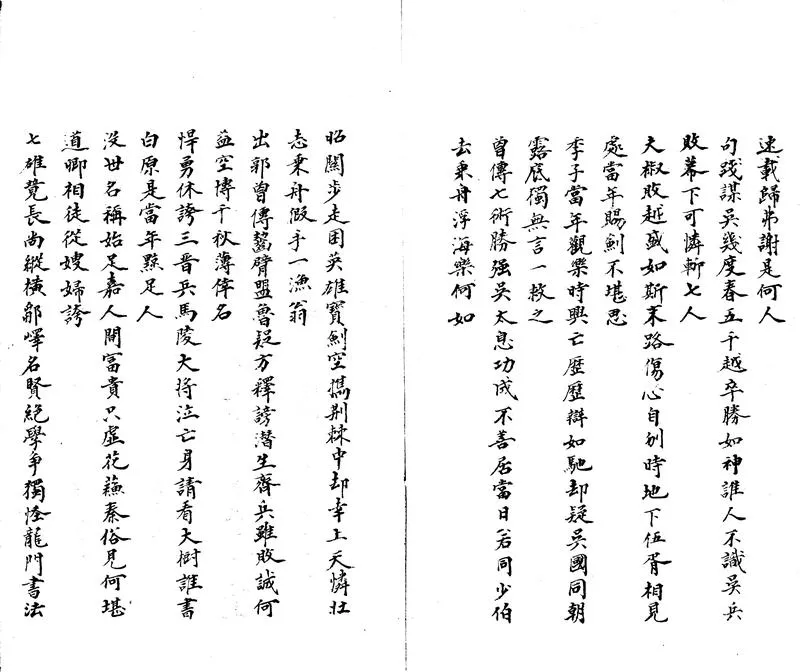 速載歸弟謝是何人
句踐謀吳幾度春五千越卒勝如神誰人不識吳兵
敗幕下可憐斬七人
夫椒敗越盛如斯末路傷心自刎時地下伍胥相見
處當年賜劍不堪思
季子當年觀樂時興亡歷歷辯如馳却疑吳國同朝
露底獨無言一救之
曾傳七術勝强吳太息功成不善居當日若同少伯
去乘舟浮海樂何如
昭關步走困英雄寶劍空攜荆棘中却幸上天憐壯
志乘舟假手一漁翁
出郭曾傳齧臂盟魯疑方釋謗潛生齊兵雖敗誠何
益空博千秋薄倖名
悍勇休誇三晋兵馬陵大將泣亡身請看大樹誰書
白原是當年黥足人
沒世名稱始足嘉人間富貴只虛花蘓秦俗見何堪
道卿相徒從嫂婦誇
七雄競長尚縱橫鄒嶧名賢絕學爭獨怪龍門書法